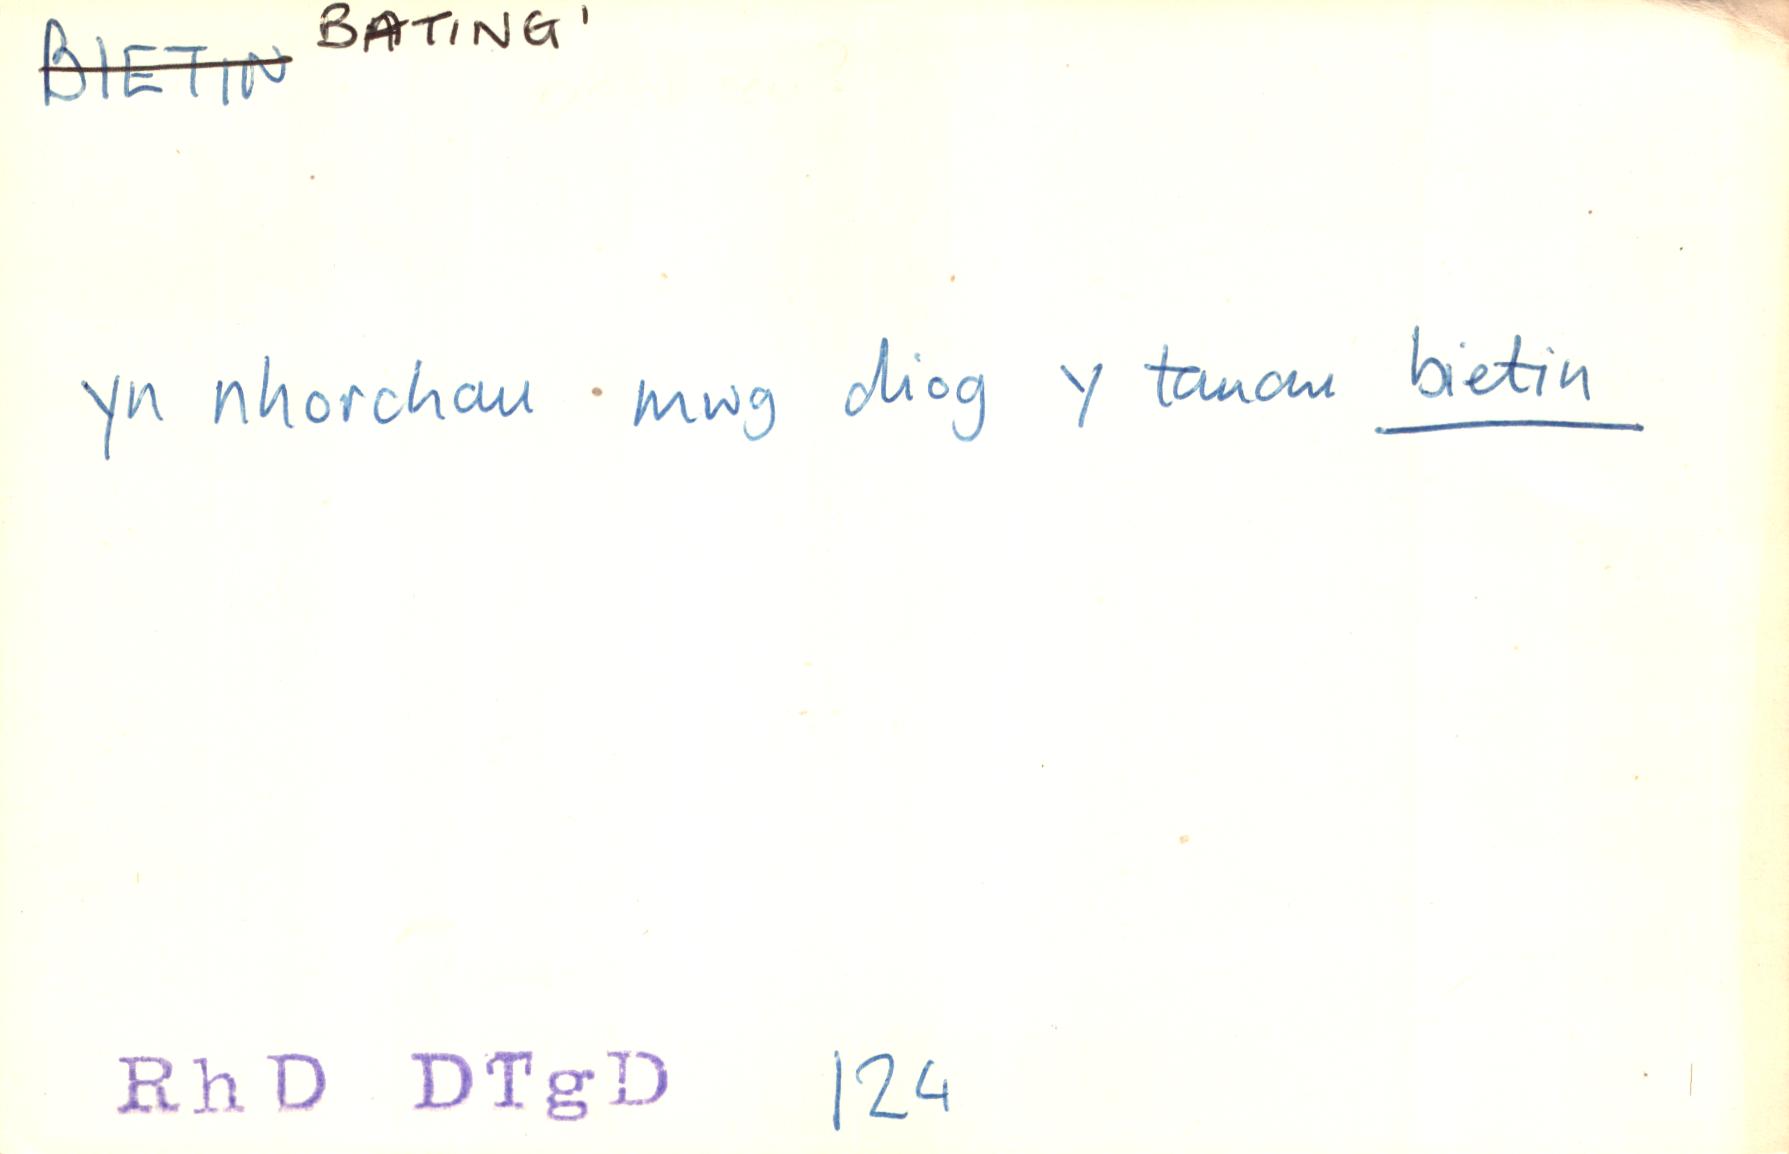 BIETIN BATING'
yn nhorchau mwg diog y tanau bietin
RhD DTgD 124